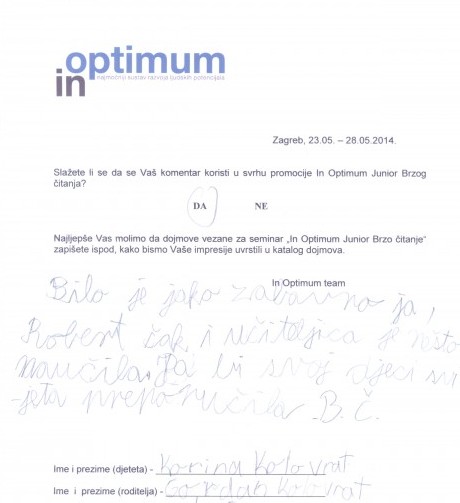 in optimum
najmoćniji sustav razvoja ljudskih potencijala
Zagreb, 23.05. – 28.05.2014.
Slažete li se da se Vaš komentar koristi u svrhu promocije In Optimum Junior Brzog
čitanja?
DA NE
Najljepše Vas molimo da dojmove vezane za seminar „In Optimum Junior Brzo čitanje“
zapišete ispod, kako bismo Vaše impresije uvrstili u katalog dojmova.
In Optimum team
Bilo je jako zabavno ja,
Robert čak i učiteljica je nešto
naučila. Ja bi svoj djeci svi
-jeta preporučila B.Č.
Ime i prezime (djeteta) - Korina Kolovrat
Ime i prezime (roditelja) - Gordan Kolovrat